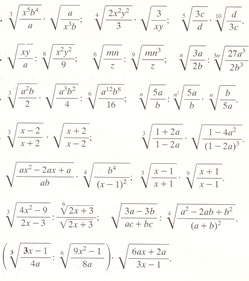 \sqrt[3]{\frac{x^5b^4}{a}} \cdot \sqrt{\frac{a}{x^3b}}; \sqrt[4]{\frac{2x^2y^2}{3}} \cdot \sqrt{\frac{3}{xy}}; \sqrt[5]{\frac{3c}{d}} \cdot \sqrt[10]{\frac{d}{3c}}.
\sqrt{\frac{xy}{a}} : \sqrt[8]{\frac{x^2y^2}{9}}; \sqrt[6]{\frac{mn}{z}} : \sqrt[9]{\frac{mn^3}{z}}; \sqrt[n]{\frac{3a}{2b}} : \sqrt[3n]{\frac{27a^3}{2b^3}}
\sqrt[3]{\frac{a^2b}{2}} \cdot \sqrt{\frac{a^3b^2}{4}} : \sqrt[6]{\frac{a^{12}b^8}{16}}; \sqrt[n]{\frac{5a}{b}} : \sqrt[n^2]{\frac{5a}{b}} \cdot \sqrt[n]{\frac{b}{5a}}
\sqrt[3]{\frac{x-2}{x+2}} \cdot \sqrt{\frac{x+2}{x-2}}; \sqrt[3]{\frac{1+2a}{1-2a}} \cdot \sqrt{\frac{1-4a^2}{(1-2a)^3}}
\sqrt{\frac{ax^2-2ax+a}{ab}} \cdot \sqrt[4]{\frac{b^4}{(x-1)^2}}; \sqrt[3]{\frac{x-1}{x+1}} \cdot \sqrt[9]{\frac{x+1}{x-1}}.
\sqrt[3]{\frac{4x^2-9}{2x-3}} : \frac{\sqrt[6]{2x+3}}{\sqrt{2x+3}}; \sqrt{\frac{3a-3b}{ac+bc}} : \sqrt[4]{\frac{a^2-2ab+b^2}{(a+b)^2}}.
\left(\sqrt[3]{\frac{3x-1}{4a}} : \sqrt[6]{\frac{9x^2-1}{8a}}\right) \cdot \sqrt{\frac{6ax+2a}{3x-1}}.